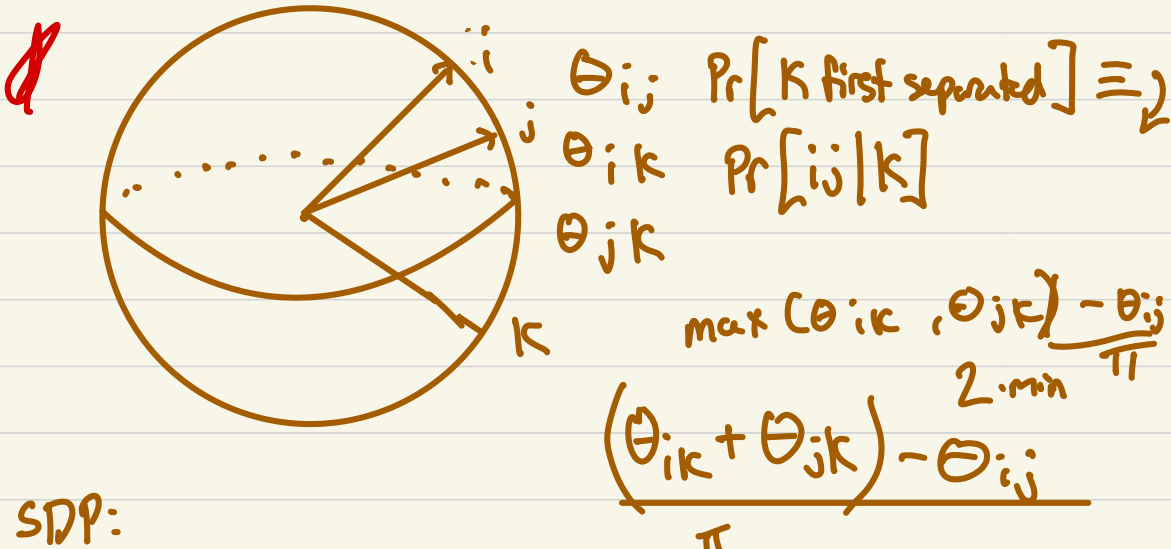 i
j
k
θij Pr[K first separated] ≡
θik Pr[ij|K]
θjk
max(θik, θjk) - θij
π
2·min
(θik + θjk) - θij
π
SDP: